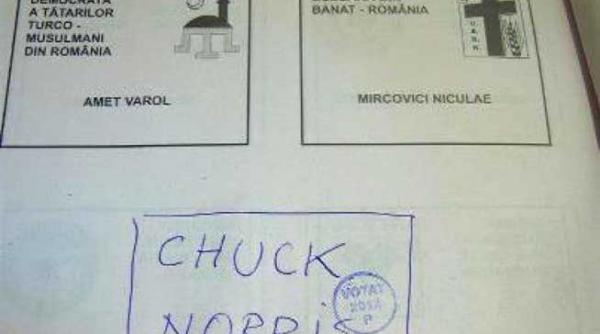 DEMOCRATĂ
A TĂTARILOR
TURCO -
MUSULMANI
DIN ROMÂNIA
AMET VAROL
BANAT - ROMÂNIA
MIRCOVICI NICULAE
CHUCK
NORRIS
VOTAT
P